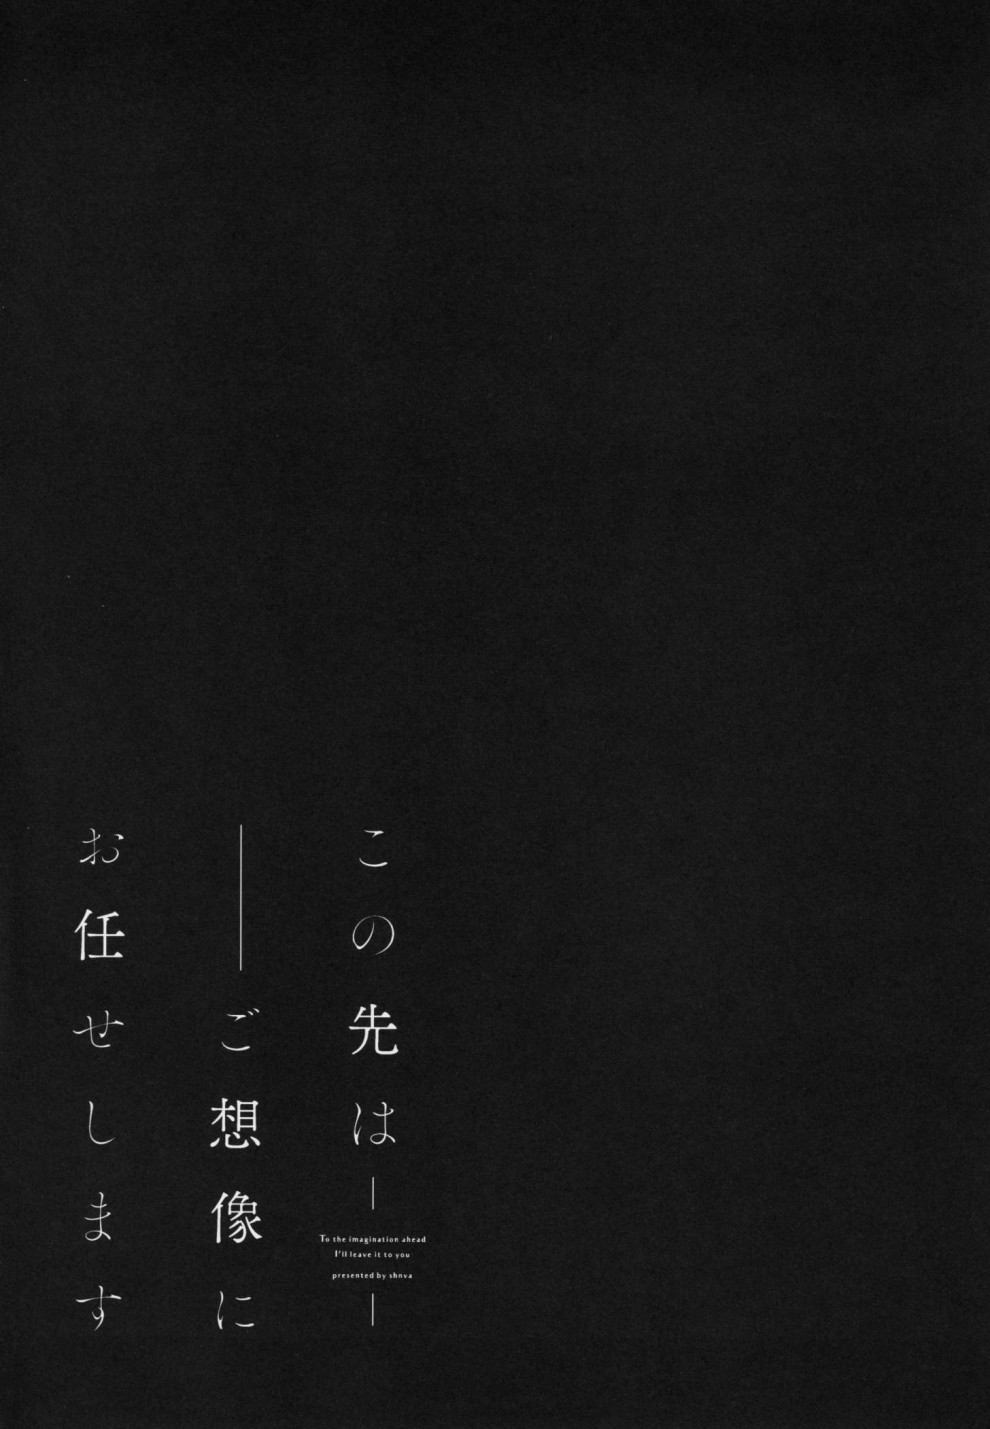 この先は
To the imagination ahead
I'll leave it to you
presented by shnva
――ご想像に
お任せします